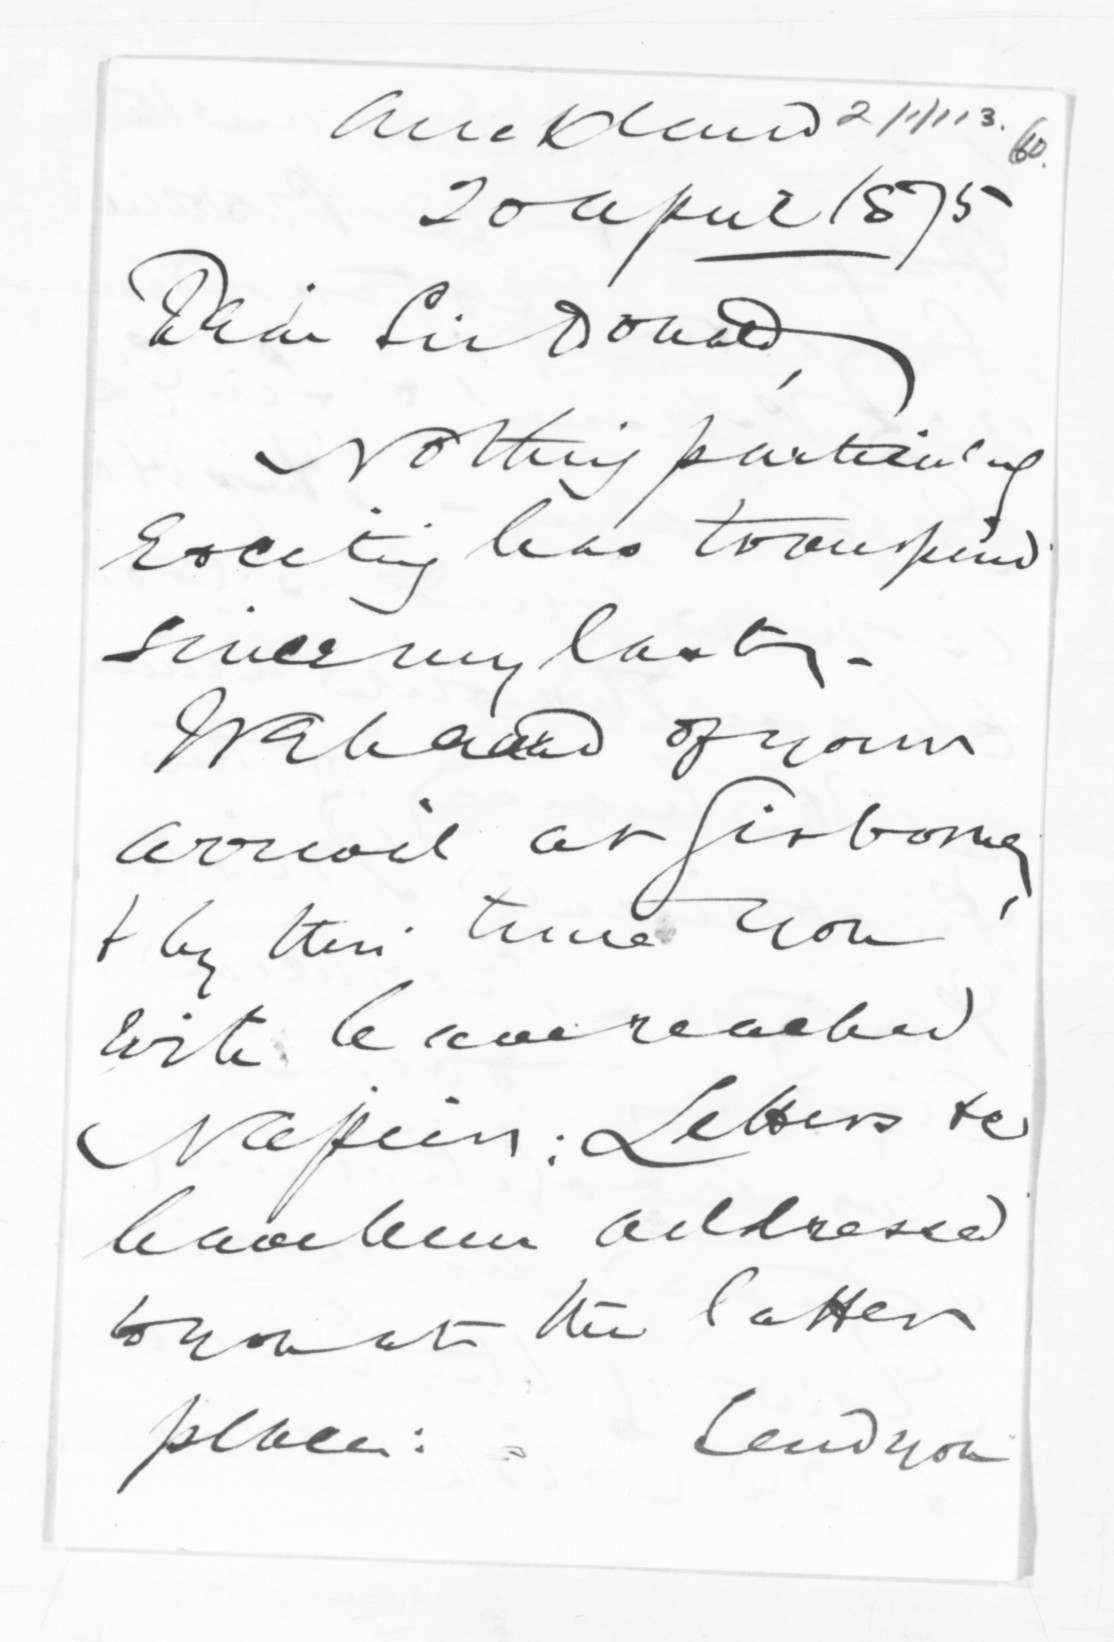 Auckland 2/1/113. 60.
20 April 1875
Dear Sir Donald,
Nothing particularly
exciting has transpired
since my last. -
We heard of your
arrival at Gisborne,
& by this time you
will have reached
Napier: Letters &c
have been addressed
to you at the latter
place: - Send you